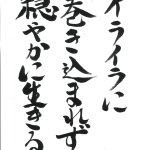 イライラに
巻き込まれず
穏やかに生きる